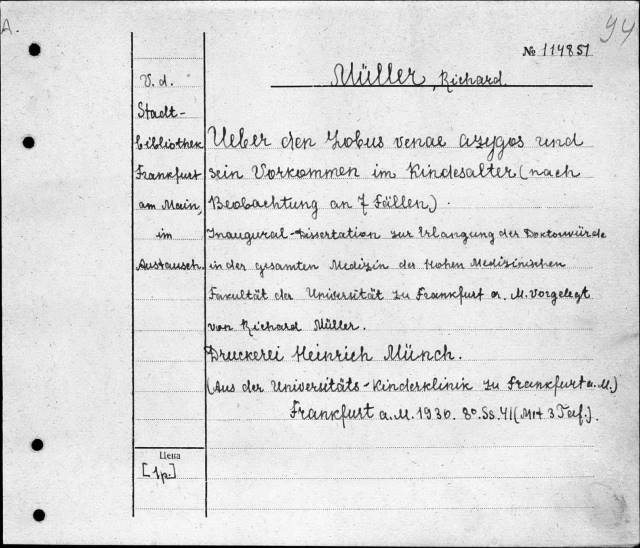 A.
94
№ 114851
Müller, Richard.
V. d.
Stadt-
bibliothek
Frankfurt
am Main,
im
Austausch.
Ueber den Lobus venae azygos und
sein Vorkommen im Kindesalter (nach
Beobachtung an 7 Fällen).
Inaugural-Dissertation zur Erlangung der Doktorwürde
in der gesamten Medizin der Hohen Medizinischen
Fakultät der Universität zu Frankfurt a. M. vorgelegt
von Richard Müller.
Druckerei Heinrich Münch.
(Aus der Universitäts-Kinderklinik zu Frankfurt a. M.)
Frankfurt a. M. 1936. 8°. Ss. 41 (Mit 3 Taf.).
Цена
[1р.]